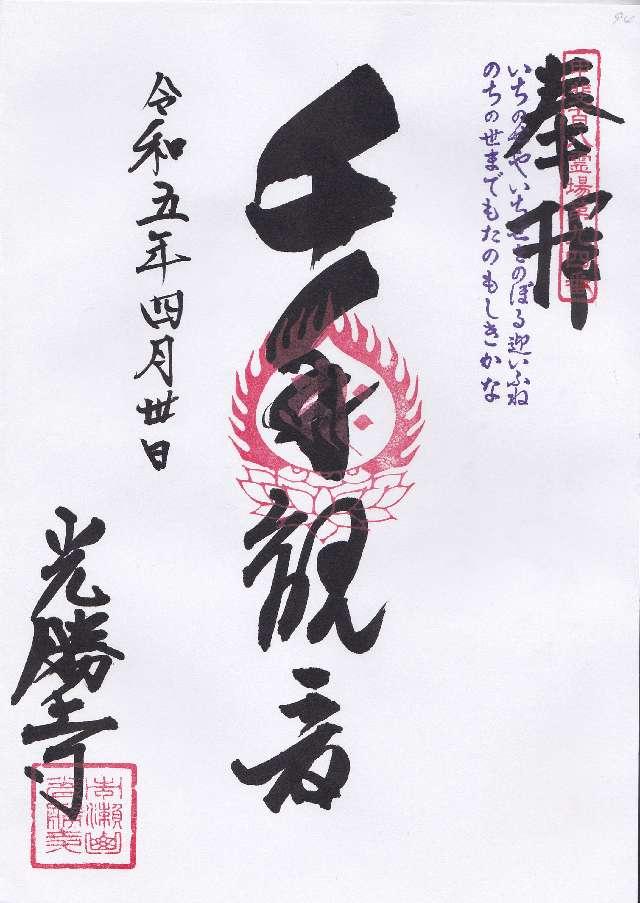 奉拝
甲斐百八霊場第九四番
いちのせやいちせとのぼる迎いふね
のちの世までもたのもしきかな
千手観音
令和五年四月丗日
光勝寺